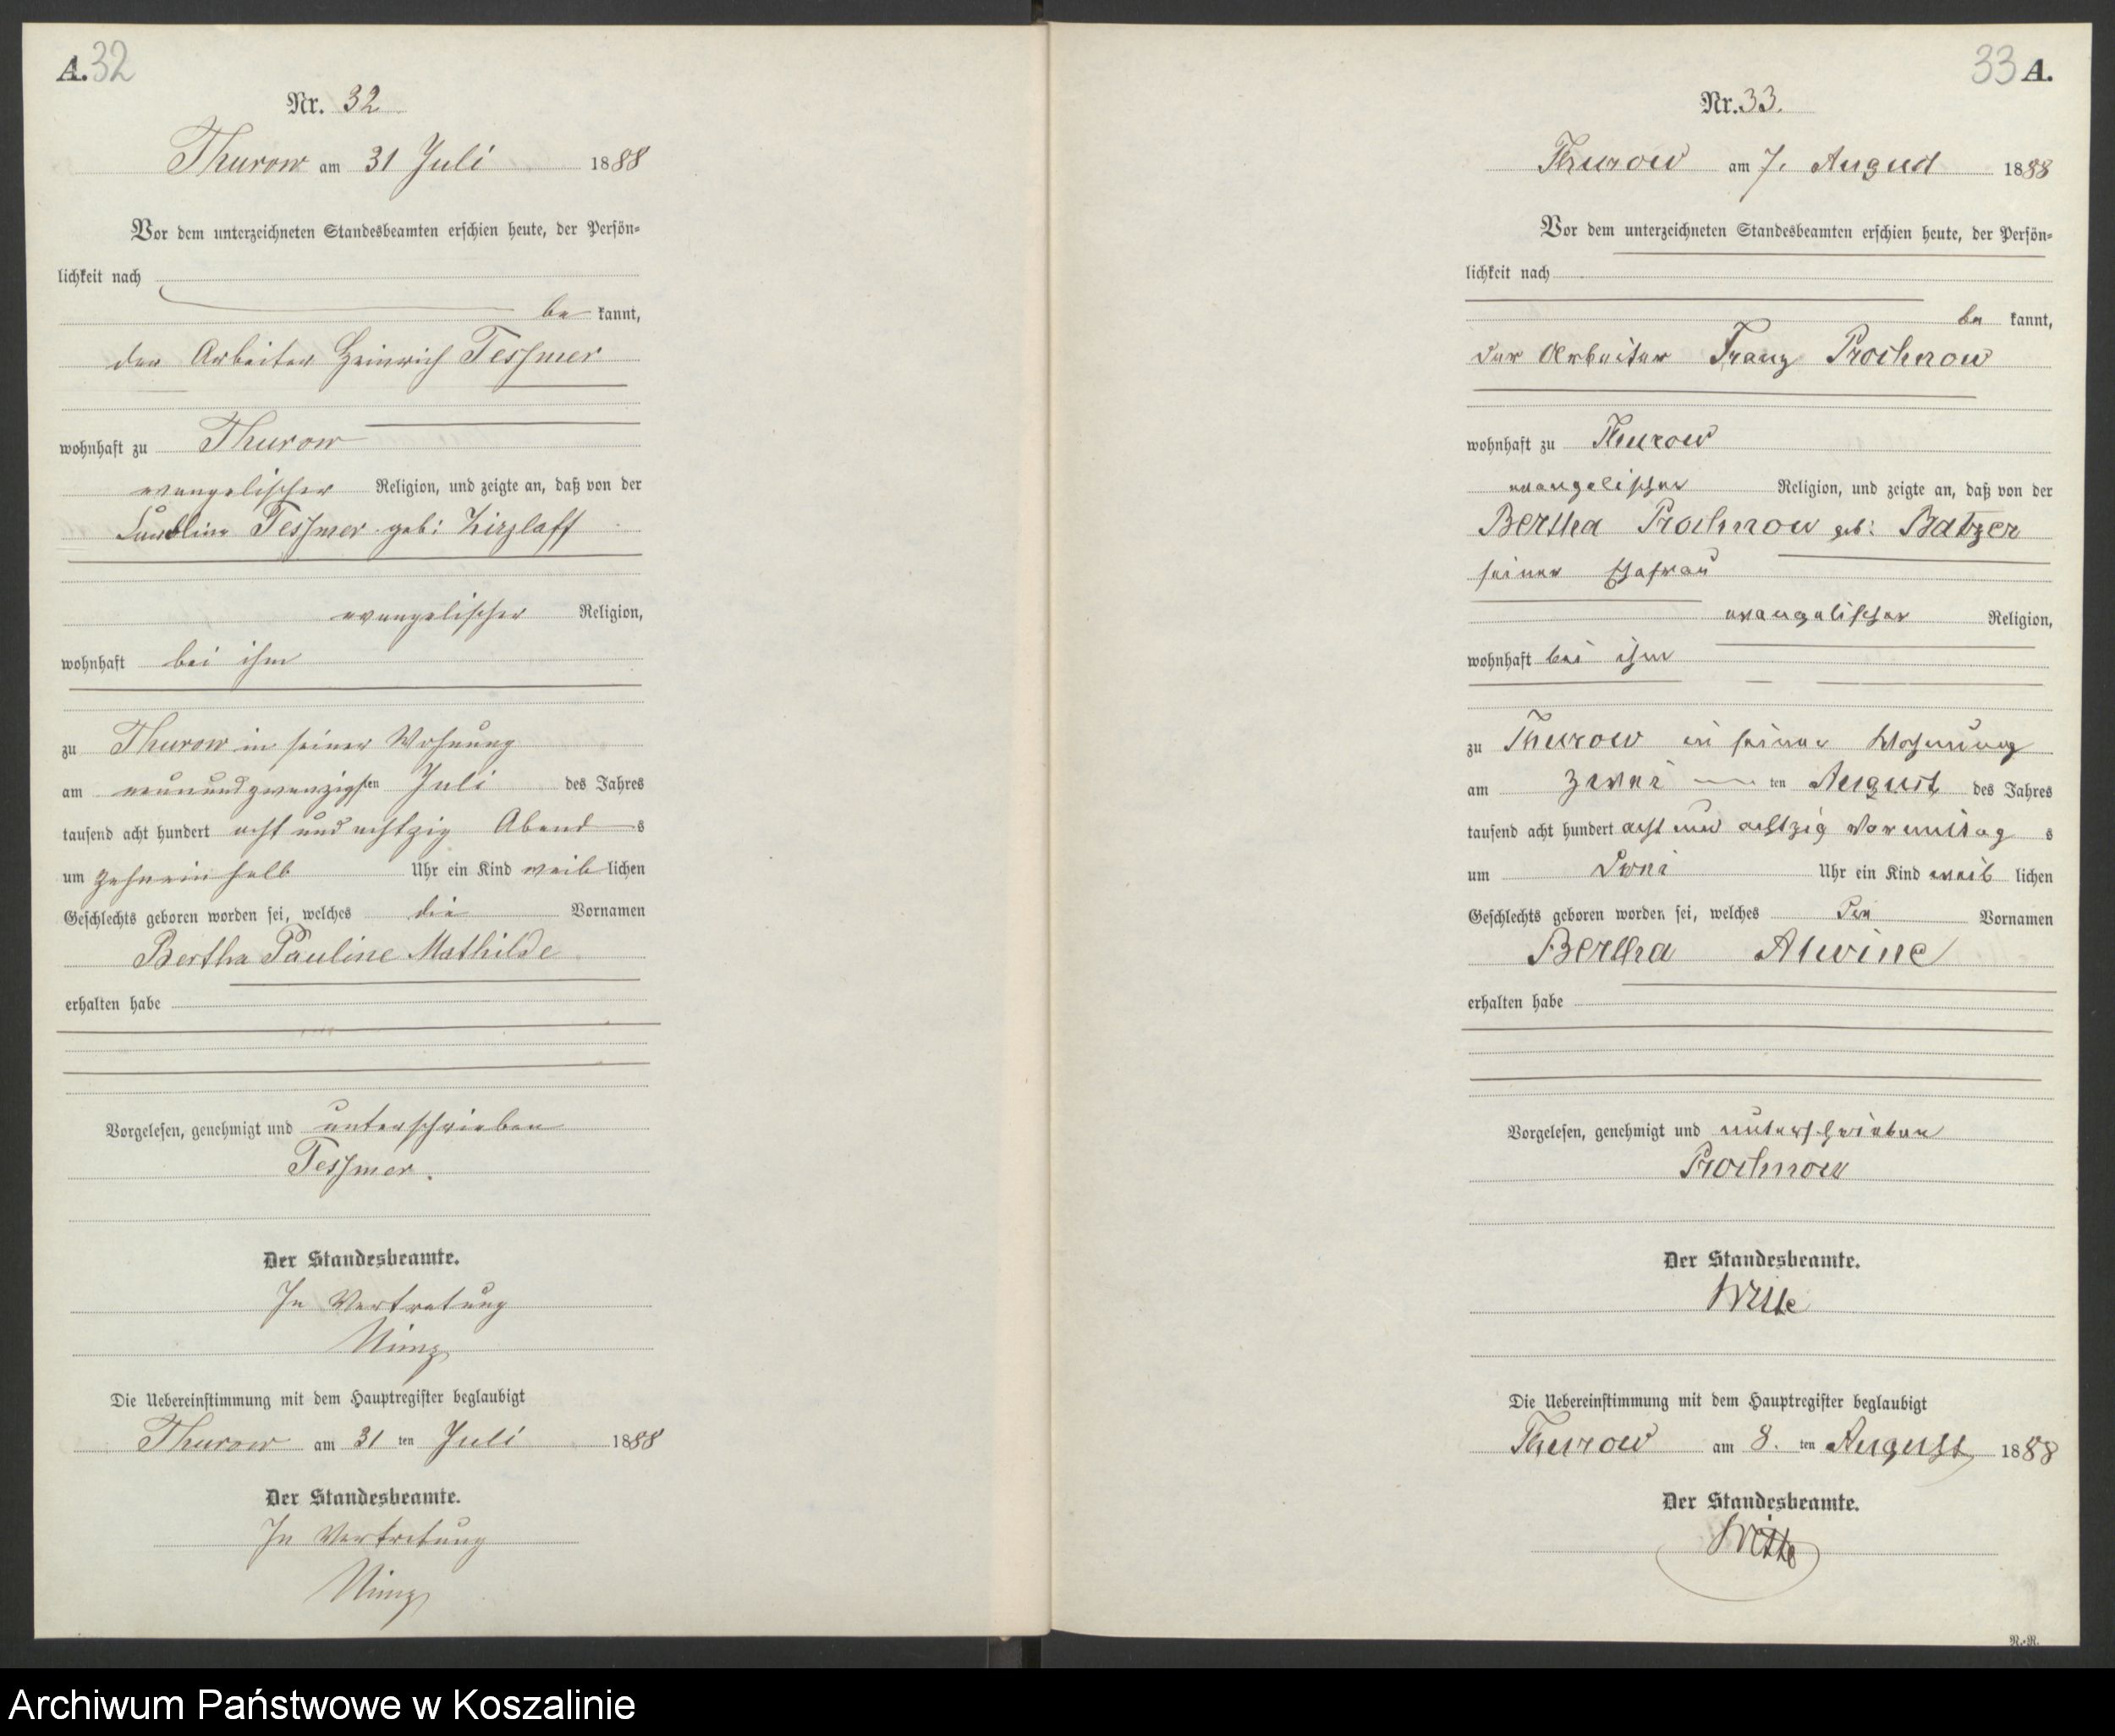 A. 32
Nr. 32
Thurow am 31 Juli 1888
Vor dem unterzeichneten Standesbeamten erschien heute, der Persön-
lichkeit nach
be kannt,
der Arbeiter Heinrich Tessmer
wohnhaft zu Thurow
evangelischer Religion, und zeigte an, daß von der
Tessmer geb: Zirzlaff
evangelischer Religion,
wohnhaft bei ihm
zu Thurow in seiner Wohnung
am neunundzwanzigsten Juli des Jahres
tausend acht hundert acht und achtzig Abend s
um zehneinhalb Uhr ein Kind weib lichen
Geschlechts geboren worden sei, welches die Vornamen
Bertha Pauline Mathilde
erhalten habe
Vorgelesen, genehmigt und unterschrieben
Tessmer.
Der Standesbeamte.
In Vertretung
Nimz
Die Uebereinstimmung mit dem Hauptregister beglaubigt
Thurow am 31 ten Juli 1888
Der Standesbeamte.
In Vertretung
Nimz
33 A.
Nr. 33.
Thurow am 7. August 1888
Vor dem unterzeichneten Standesbeamten erschien heute, der Persön-
lichkeit nach
be kannt,
der Arbeiter Franz Prochnow
wohnhaft zu Thurow
evangelischer Religion, und zeigte an, daß von der
Bertha Prochnow geb: Batzer
seiner Ehefrau
evangelischer Religion,
wohnhaft bei ihm
zu Thurow in seiner Wohnung
am zwei ten August des Jahres
tausend acht hundert acht und achtzig Vormittag s
um Drei Uhr ein Kind weib lichen
Geschlechts geboren worden sei, welches Die Vornamen
Bertha Alwine
erhalten habe
Vorgelesen, genehmigt und unterschrieben
Prochnow
Der Standesbeamte.
Witte
Die Uebereinstimmung mit dem Hauptregister beglaubigt
Thurow am 8. ten August 1888
Der Standesbeamte.
Witte
N.-N.
Archiwum Państwowe w Koszalinie